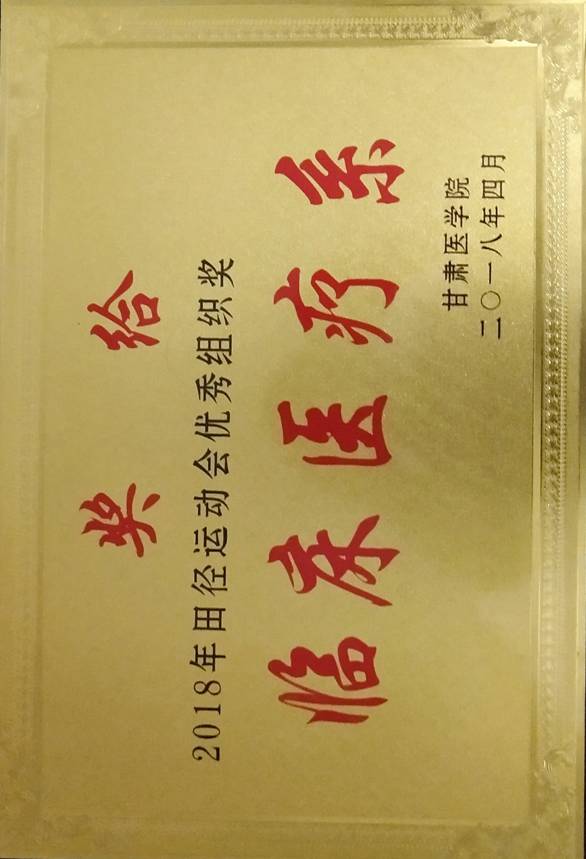 奖给
2018年田径运动会优秀组织奖
临床医疗系
甘肃医学院
二〇一八年四月